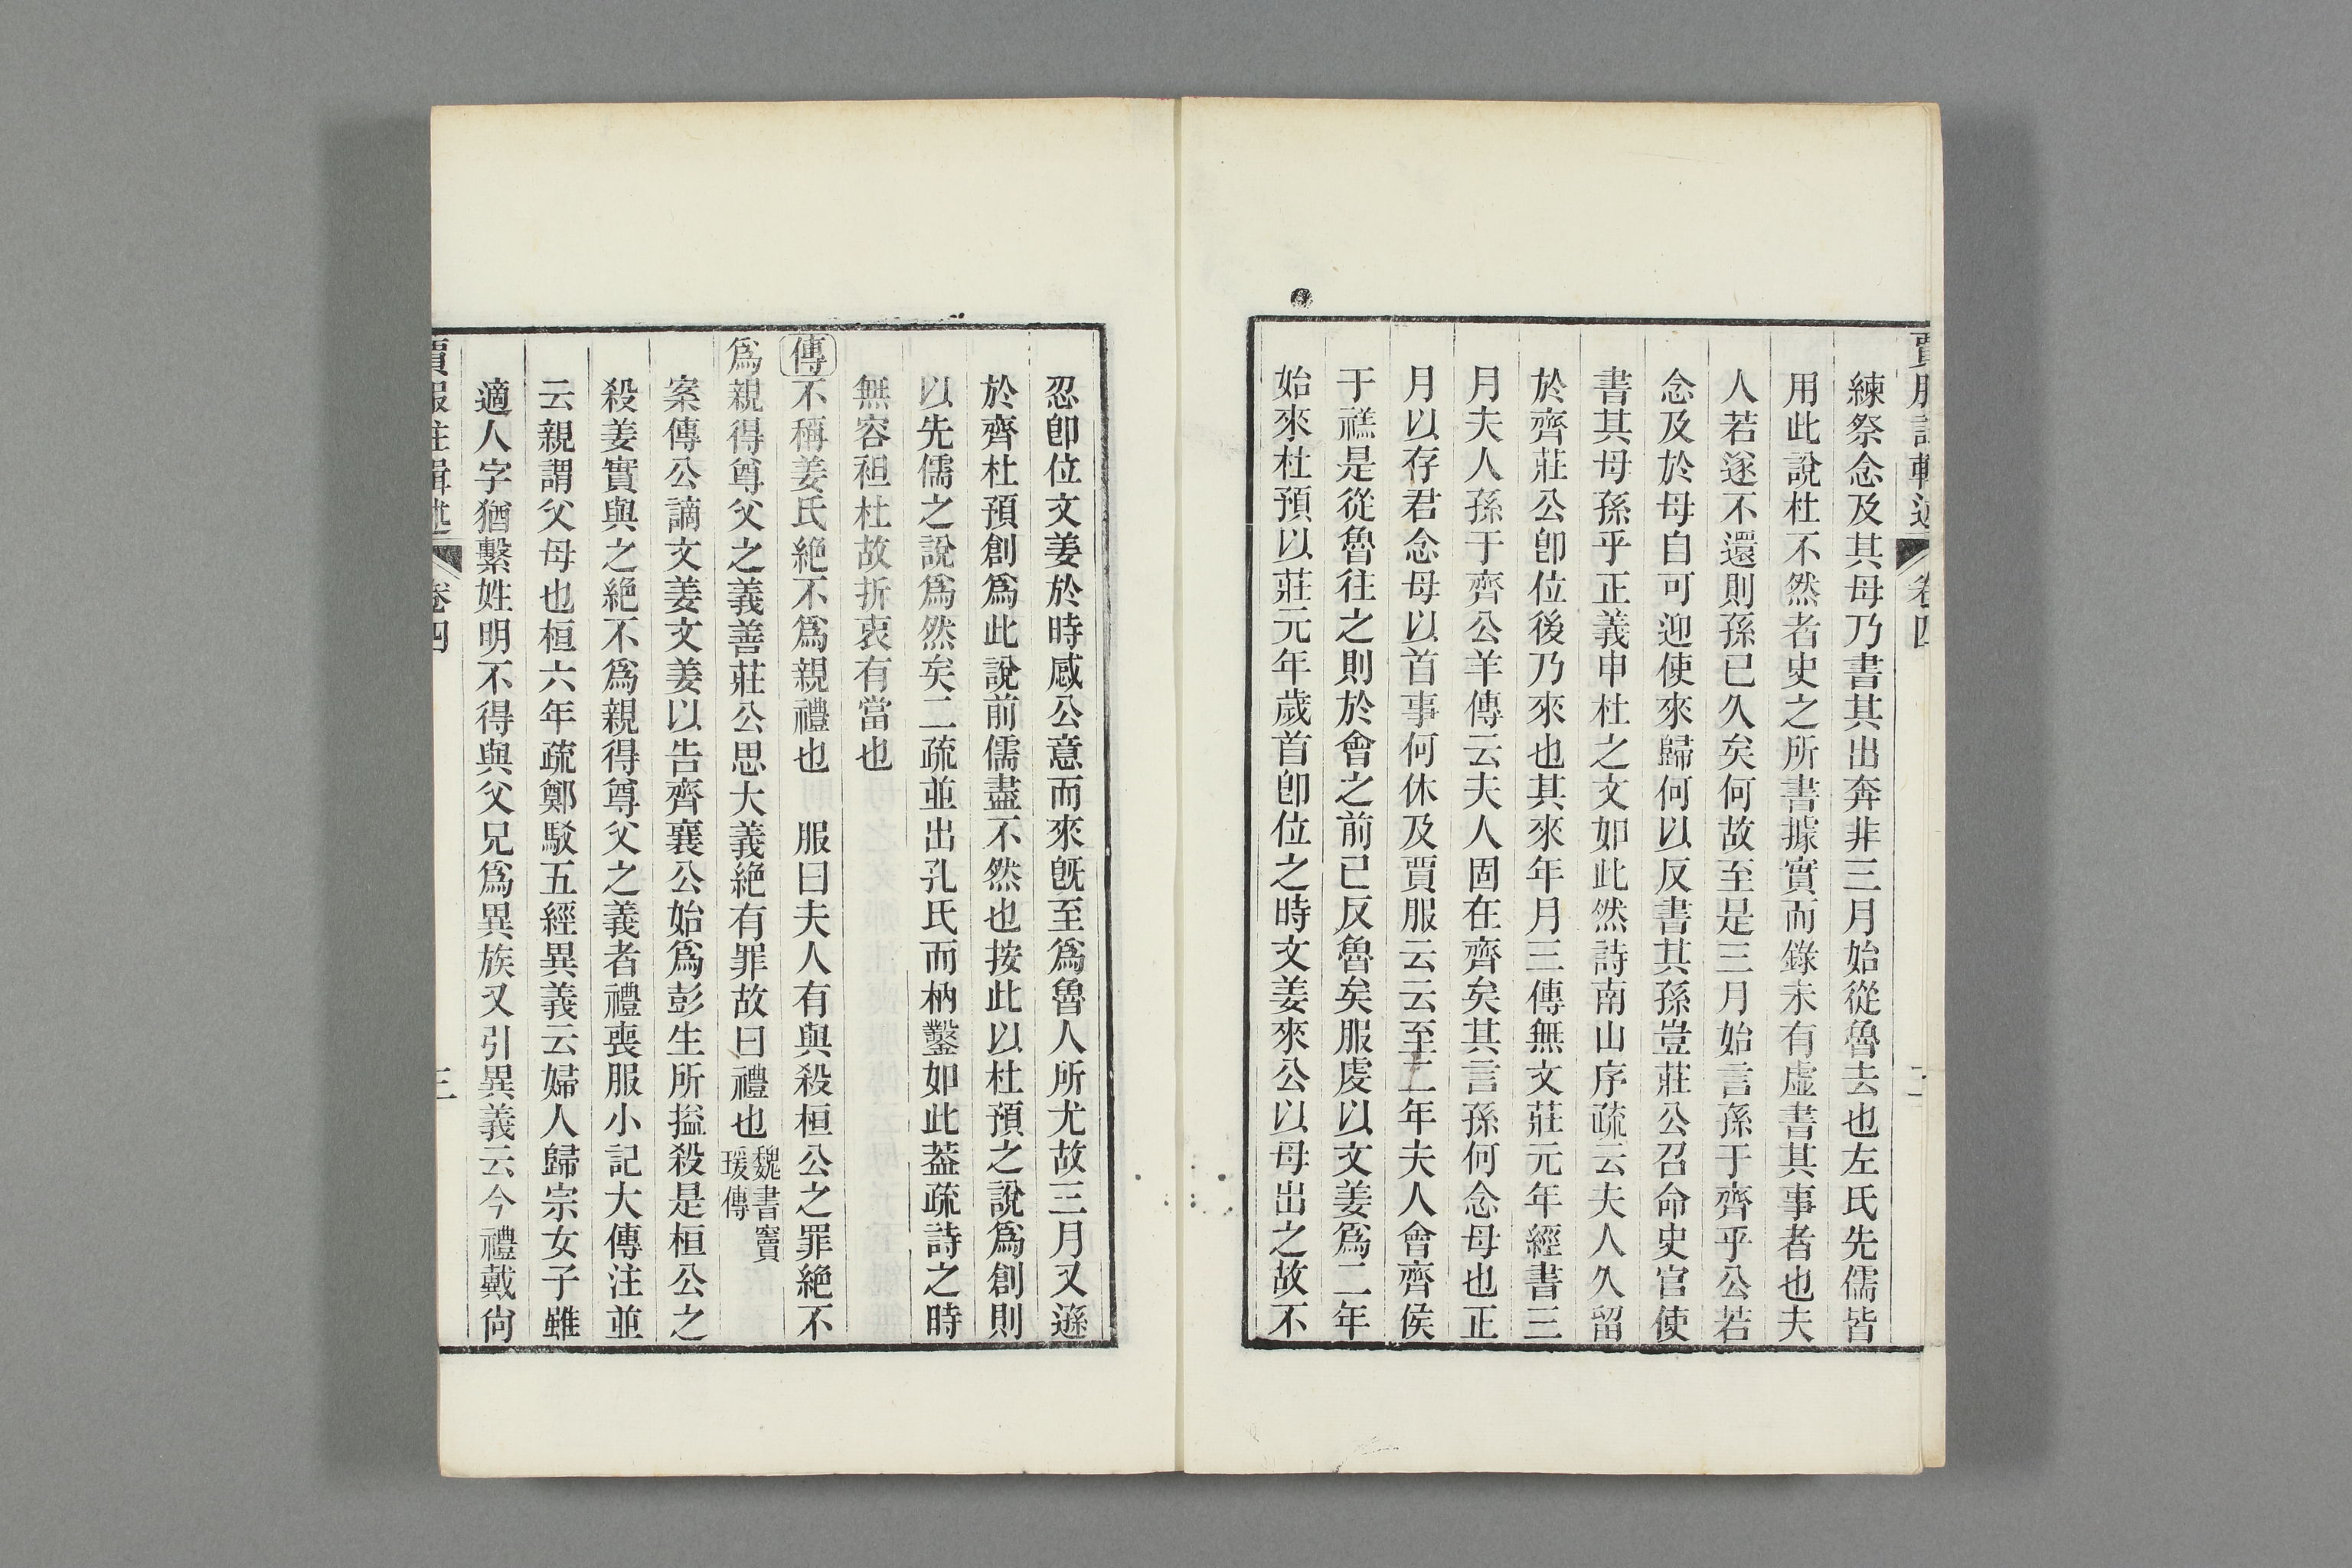 賈服註輯述 卷四 二
練祭念及其母乃書其出奔非三月始從魯去也左氏先儒皆
用此說杜不然者史之所書據實而錄未有虛書其事者也夫
人若遂不還則孫已久矣何故至是三月始言孫于齊乎公若
念及於母自可迎使來歸何以反書其孫豈莊公召命史官使
書其母孫乎正義申杜之文如此然詩南山序疏云夫人久留
於齊莊公卽位後乃來也其來年月三傳無文莊元年經書三
月夫人孫于齊公羊傳云夫人固在齊矣其言孫何念母也正
月以存君念母以首事何休及賈服云云至二年夫人會齊侯
于禚是從魯往之則於會之前已反魯矣服虔以文姜爲二年
始來杜預以莊元年歲首卽位之時文姜來公以母出之故不
忍卽位文姜於時感公意而來旣至爲魯人所尤故三月又遜
於齊杜預創爲此說前儒盡不然也按此以杜預之說爲創則
以先儒之說爲然矣二疏並出孔氏而枘鑿如此葢疏詩之時
無容袒杜故折衷有當也
傳不稱姜氏絕不爲親禮也 服曰夫人有與殺桓公之罪絕不
爲親得尊父之義善莊公思大義絕有罪故曰禮也魏書竇瑗傳
案傳公謫文姜文姜以告齊襄公始爲彭生所搤殺是桓公之
殺姜實與之絕不爲親得尊父之義者禮喪服小記大傳注並
云親謂父母也桓六年疏鄭駁五經異義云婦人歸宗女子雖
適人字猶繫姓明不得與父兄爲異族又引異義云今禮戴尙
賈服註輯述 卷四 三